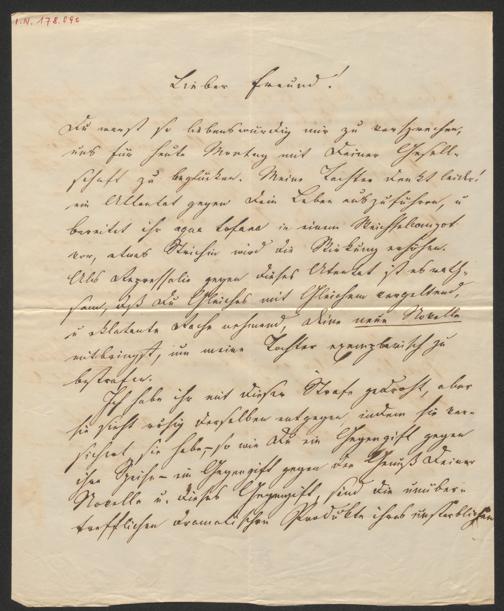 I.N. 178.090
Lieber Freund!
Du warst so liebenswürdig mir zu versprechen,
uns für heute Montag mit Deiner Gesell-
schaft zu beglücken. Meine Tochter denkt leider!
ein Attentat gegen Dein Leben auszuführen, u
bereitet ihr aqua tofana in einem Weichselkompot
vor, etwas Strichin wird die Wirkung erhöhen.
Als Repressalie gegen dieses Attentat ist es rath-
sam, daß Du Gleiches mit Gleichem vergeltend,
u eklatante Rache nehmend, Deine neue Novelle
mitbringst, um meine Tochter exemplarisch zu
bestrafen.
Ich habe ihr mit dieser Strafe gedroht, aber
sie sieht ruhig derselben entgegen indem sie ver-
sichert sie habe, so wie Du ein Gegengift gegen
ihre Speise – ein Gegengift gegen den Genuß Deiner
Novelle u dieses Gegengift, sind die unüber-
trefflichen dramatischen Produkte ihres unsterblichen